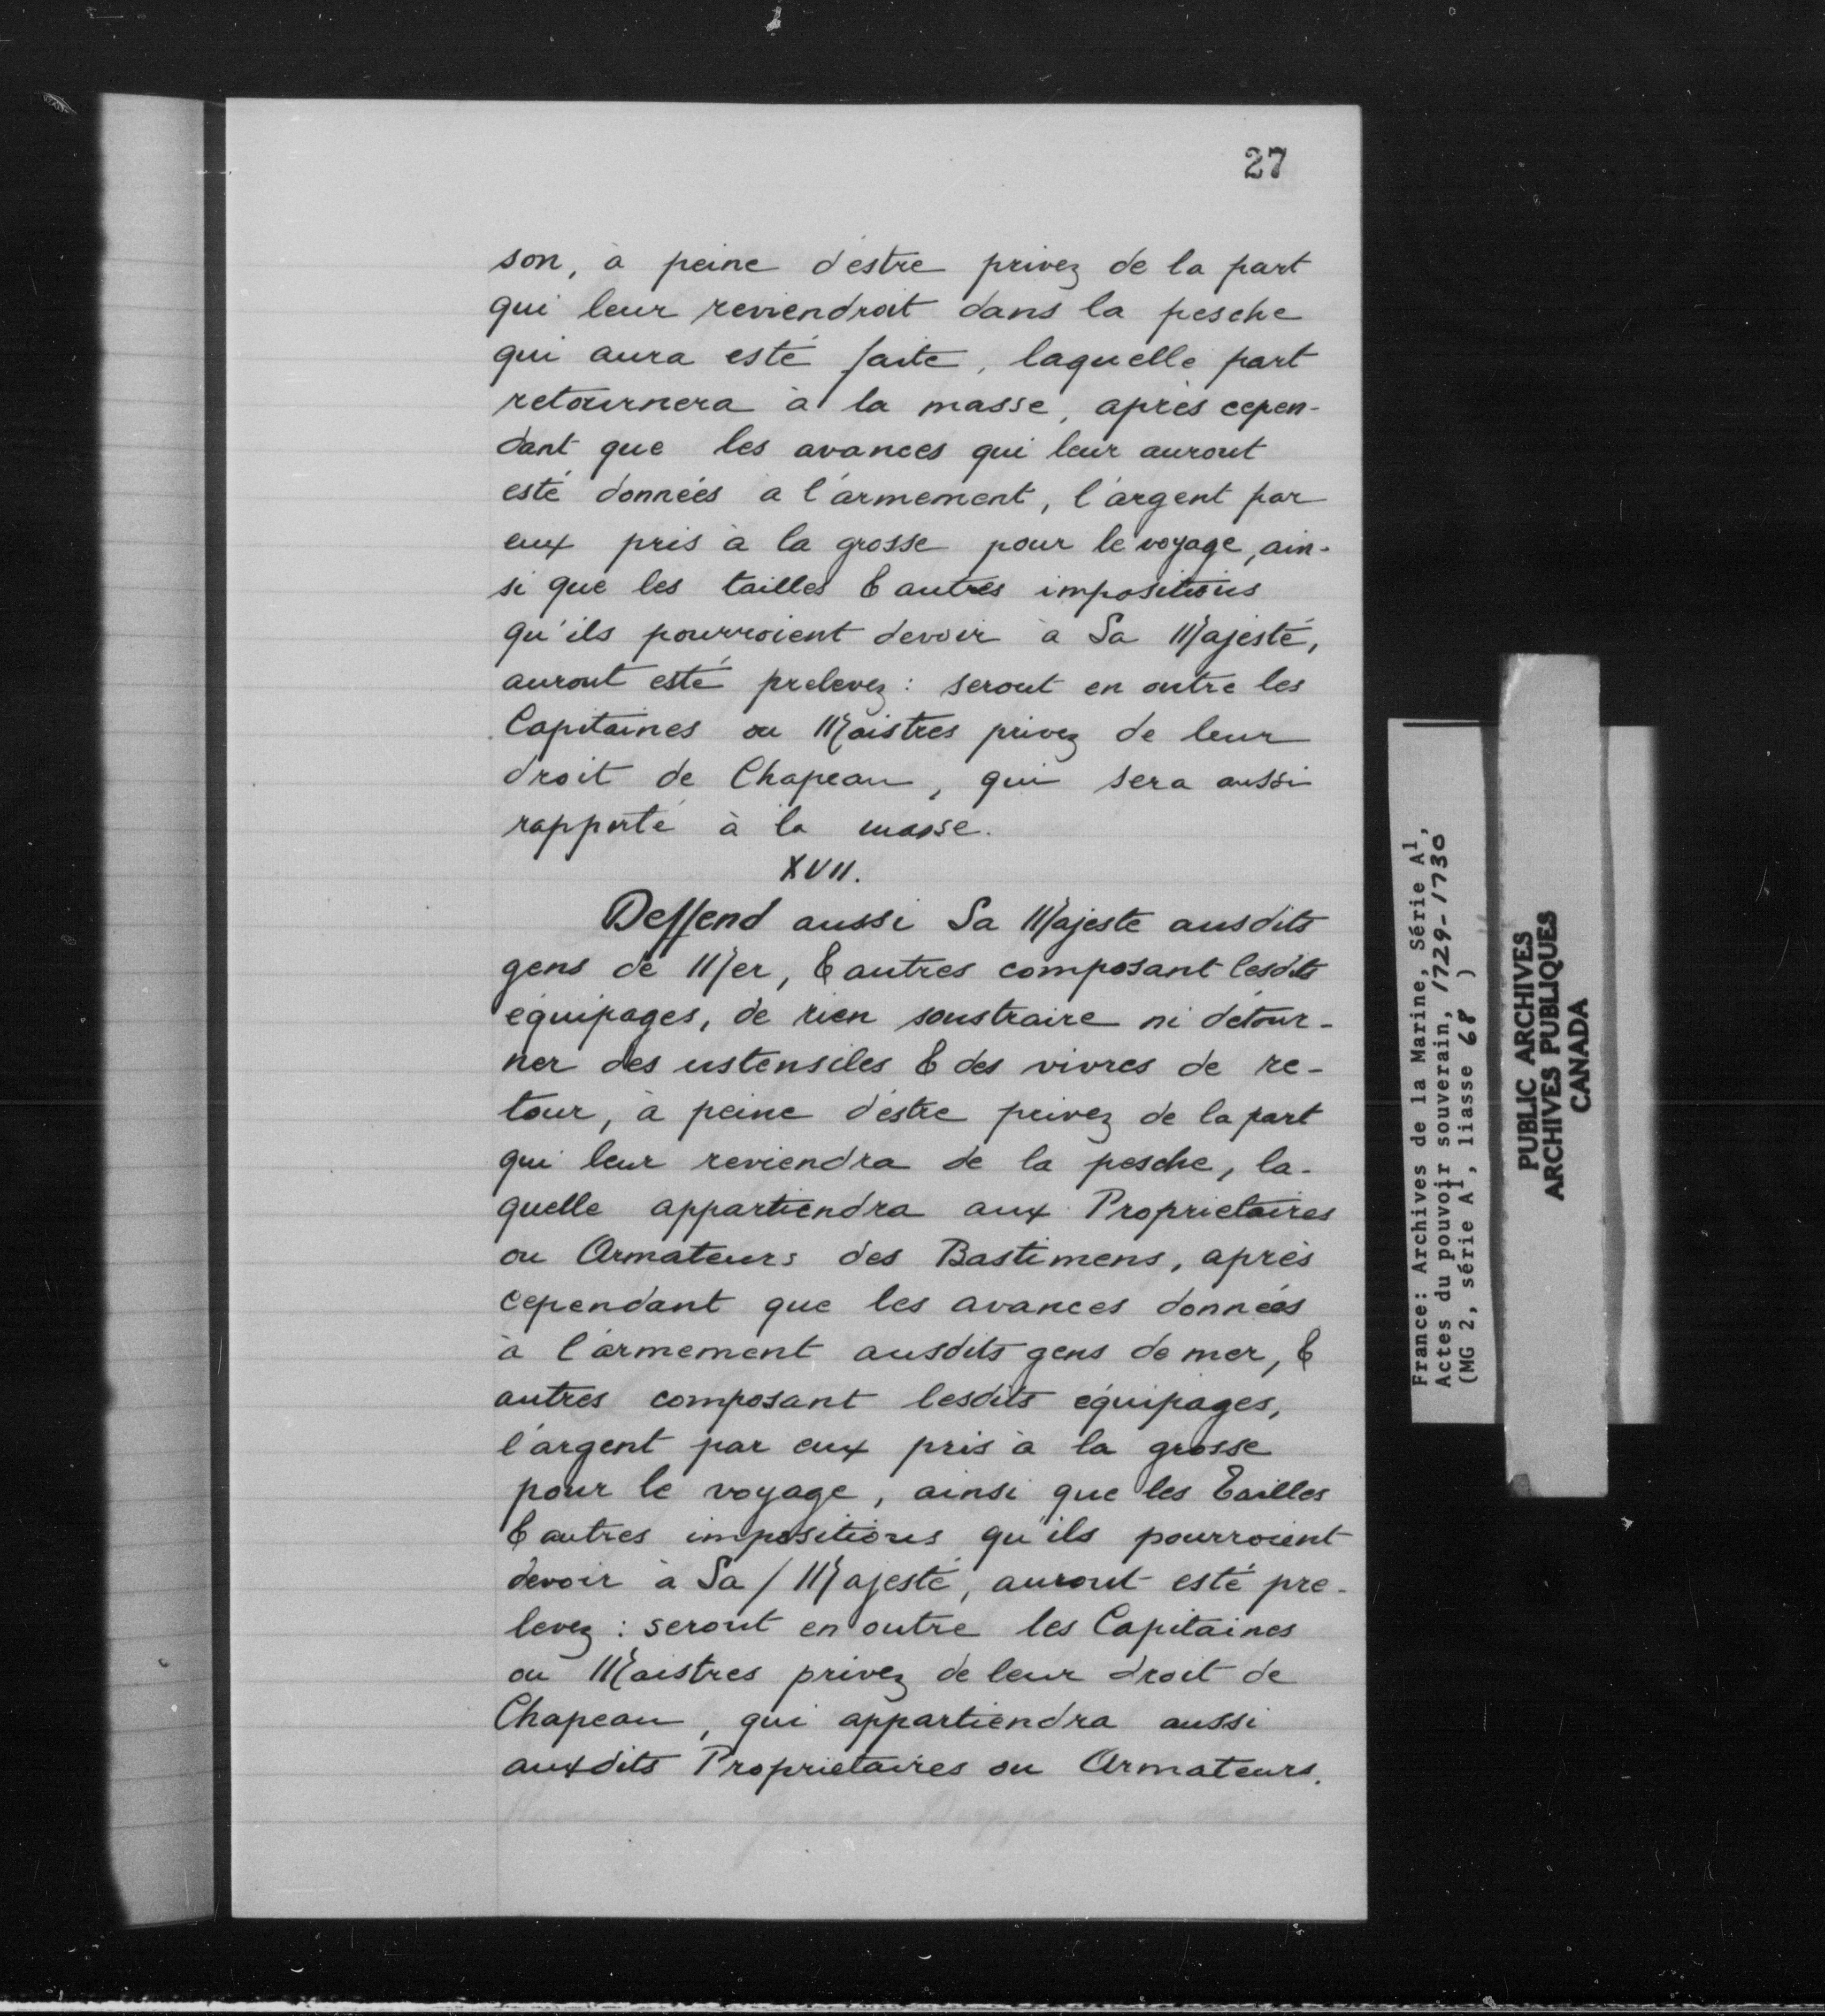 27
son, à peine d'estre privez de la part
qui leur reviendroit dans la pesche
qui aura esté faite, laquelle part
retournera à la masse, après cepen-
dant que les avances qui leur auront
esté données a l'armement, l'argent par
eux pris à la grosse pour le voyage, ain-
si que les tailles & autres impositions
qu'ils pourroient devoir à Sa Majesté,
auront esté prelevez : seront en outre les
Capitaines ou Maistres privez de leur
droit de Chapeau, qui sera aussi
rapporté à la masse.
XVII.
Deffend aussi Sa Majeste ausdits
gens de Mer, & autres composant lesdits
équipages, de rien soustraire ni détour-
ner des ustensiles & des vivres de re-
tour, à peine d'estre privez de la part
qui leur reviendra de la pesche, la-
quelle appartiendra aux Proprietaires
ou Armateurs des Bastimens, après
cependant que les avances données
à l'armement ausdits gens de mer, &
autres composant lesdits équipages,
l'argent par eux pris à la grosse
pour le voyage, ainsi que les Tailles
& autres impositions qu'ils pourroient
devoir à Sa / Majesté, auront esté pre-
levez : seront en outre les Capitaines
ou Maistres privez de leur droit de
Chapeau, qui appartiendra aussi
auxdits Proprietaires ou Armateurs.
France: Archives de la Marine, Série A1,
Actes du pouvoir souverain, 1729-1730
(MG 2, série A1, liasse 68 )
PUBLIC ARCHIVES
ARCHIVES PUBLIQUES
CANADA